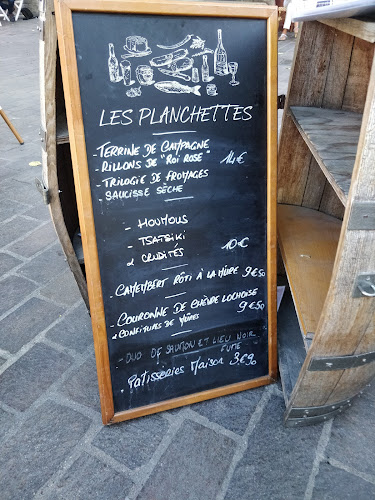 LES PLANCHETTES
- TERRINE DE CAMPAGNE
- RILLONS DE "ROI ROSE" 14€
- TRILOGIE DE FROMAGES
- SAUCISSE SÈCHE
- HOUMOUS
- TSATSIKI
& CRUDITÉS 10€
- CAMEMBERT RÔTI À LA MÛRE 9€50
- COURONNE DE CHÈVRE LOCHOISE 9€50
& CONFITURE DE MÛRES
- DUO DE SAUMON ET LIEU NOIR
FUMÉ
- PATISSERIES MAISON 3€90